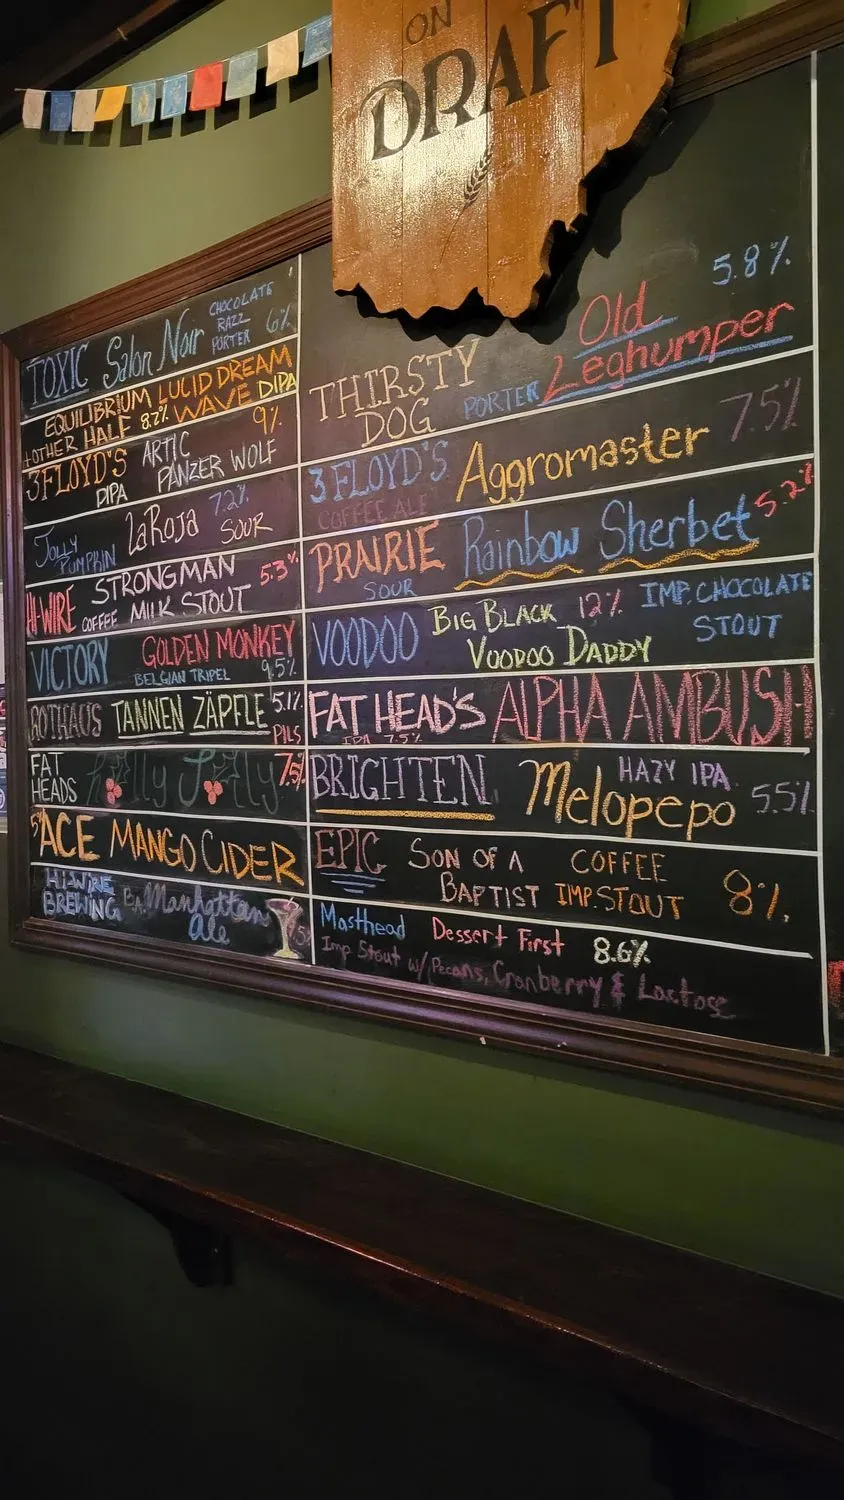 ON
DRAFT
TOXIC Salon Noir CHOCOLATE
RAZZ
PORTER 6%
EQUILIBRIUM LUCID DREAM
+OTHER HALF 8.2% WAVE DIPA
3FLOYD'S ARTIC 9%
DIPA PANZER WOLF
JOLLY
PUMPKIN LaRoja 7.2%
SOUR
HI-WIRE STRONGMAN 5.3%
COFFEE MILK STOUT
VICTORY GOLDEN MONKEY
BELGIAN TRIPEL 9.5%
ROTHAUS TANNEN ZÄPFLE 5.1%
PILS
FAT
HEADS Holly Jolly 7.5%
5% ACE MANGO CIDER
HI-WIRE
BREWING B.A. Manhattan
Ale
THIRSTY
DOG PORTER Old 5.8%
Leghumper
3 FLOYD'S Aggromaster 7.5%
COFFEE ALE
PRAIRIE Rainbow Sherbet 5.2%
SOUR
VOODOO BIG BLACK 12% IMP. CHOCOLATE
VOODOO DADDY STOUT
FAT HEAD'S ALPHA AMBUSH
IPA 7.5%
BRIGHTEN Melopepo HAZY IPA 5.5%
EPIC SON OF A COFFEE
BAPTIST IMP. STOUT 8%
Masthead Dessert First 8.6%
Imp Stout w/ Pecans, Cranberry & Lactose